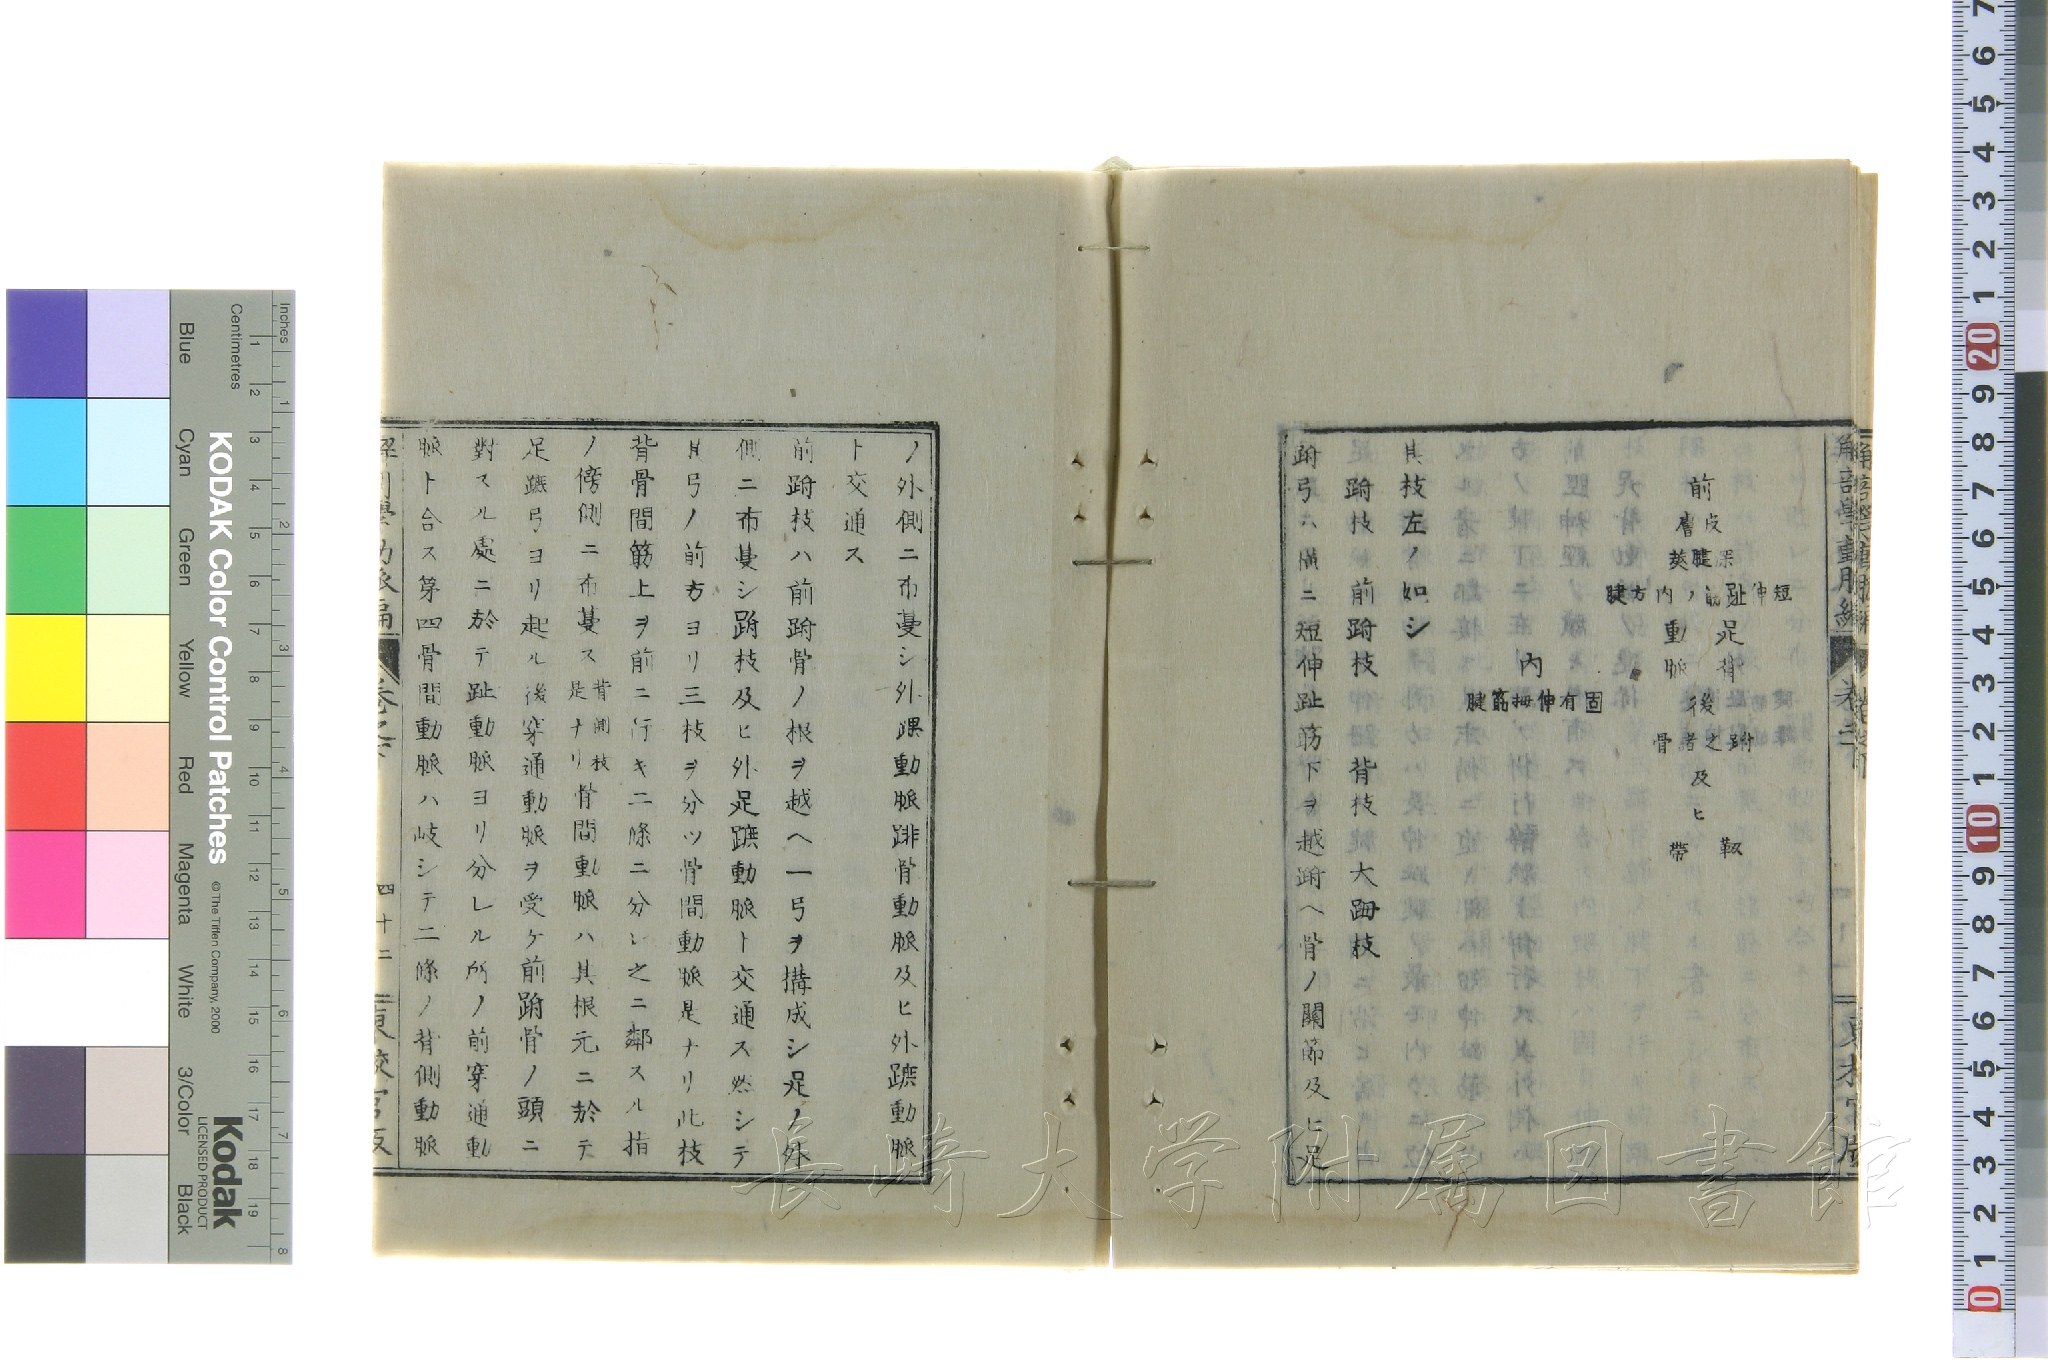 前
皮膚
深腱莢
短伸趾筋ノ内方腱
足背動脈
内
固有伸拇筋腱
後
跗之者骨
及ヒ
靱帯
其枝左ノ如シ
跗枝 前跗枝 背枝 大踇枝
跗弓ハ横ニ短伸趾筋下ヲ越跗ヘ骨ノ關節及ヒ足
ノ外側ニ布蔓シ外踝動脈腓骨動脈及ヒ外蹠動脈
ト交通ス
前跗枝ハ前跗骨ノ根ヲ越ヘ一弓ヲ構成シ足ノ外
側ニ布蔓シ跗枝及ヒ外足蹠動脈ト交通ス然シテ
其弓ノ前方ヨリ三枝ヲ分ツ骨間動脈是ナリ此枝
背骨間筋上ヲ前ニ行キ二條ニ分レ之ニ鄰スル指
ノ傍側ニ布蔓ス背側枝是ナリ骨間動脈ハ其根元ニ於テ
足蹠弓ヨリ起ル後穿通動脈ヲ受ケ前跗骨ノ頭ニ
對スル處ニ於テ趾動脈ヨリ分レル所ノ前穿通動
脈ト合ス第四骨間動脈ハ岐シテ二條ノ背側動脈
四十二
長崎大学附属図書館
KODAK Color Control Patches
© The Tiffen Company, 2000
Kodak
LICENSED PRODUCT
Inches
Centimetres
Blue
Cyan
Green
Yellow
Red
Magenta
White
3/Color
Black